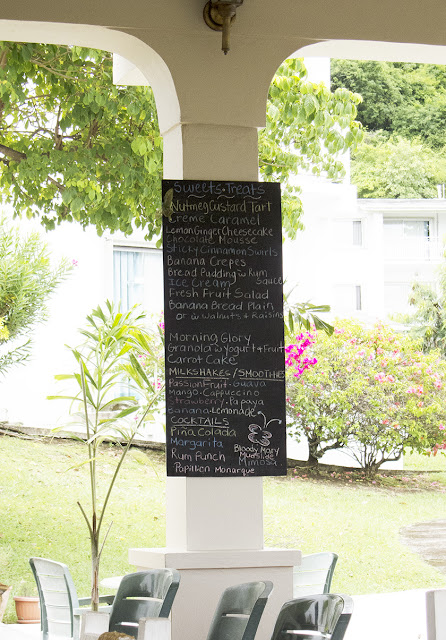 Sweets + Treats
Nutmeg Custard Tart
Creme Caramel
Lemon Ginger Cheesecake
Chocolate Mousse
Sticky Cinnamon Swirls
Banana Crepes
Bread Pudding w Rum Sauce
Ice Cream
Fresh Fruit Salad
Banana Bread Plain
or w Walnuts + Raisins
Morning Glory
Granola w Yogurt + Fruit
Carrot Cake
MILKSHAKES/SMOOTHIES
Passionfruit · Guava
Mango · Cappuccino
Strawberry · Papaya
Banana · Lemonade
COCKTAILS
Pina Colada
Margarita
Rum Punch
Papillon Monarque
Bloody Mary
Mudslide
Mimosa